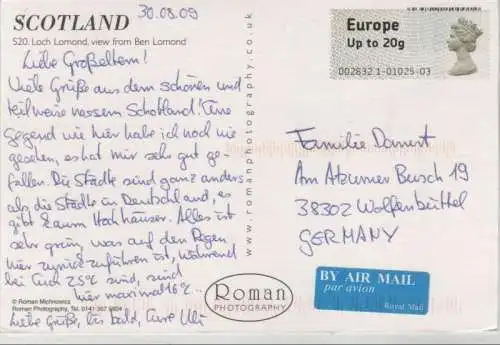 SCOTLAND
30.08.09
520. Loch Lomond, view from Ben Lomond
Liebe Großeltern!
Viele Grüße aus dem schönen und
teilweise nassem Schottland! Eine
Gegend wie hier habe ich noch nie
gesehen, es hat mir sehr gut ge-
fallen. Die Städte sind ganz anders
als die Städte in Deutschland, es
gibt kaum Hochhäuser. Alles ist
sehr grün, was auf den Regen
hier zurückzuführen ist, während
bei Euch 25°C sind, sind
hier maximal 16°C..
Liebe Grüße, bis bald, Eure Uli
© Roman Michnowicz
Roman Photography, Tel. 0141 357
www.romanphotography.co.uk
Roman
PHOTOGRAPHY
Europe
Up to 20g
002832 1-01025-03
Familie
Am Atzumer Busch 19
38302 Wolfenbüttel
GERMANY
BY AIR MAIL
par avion
Royal Mail